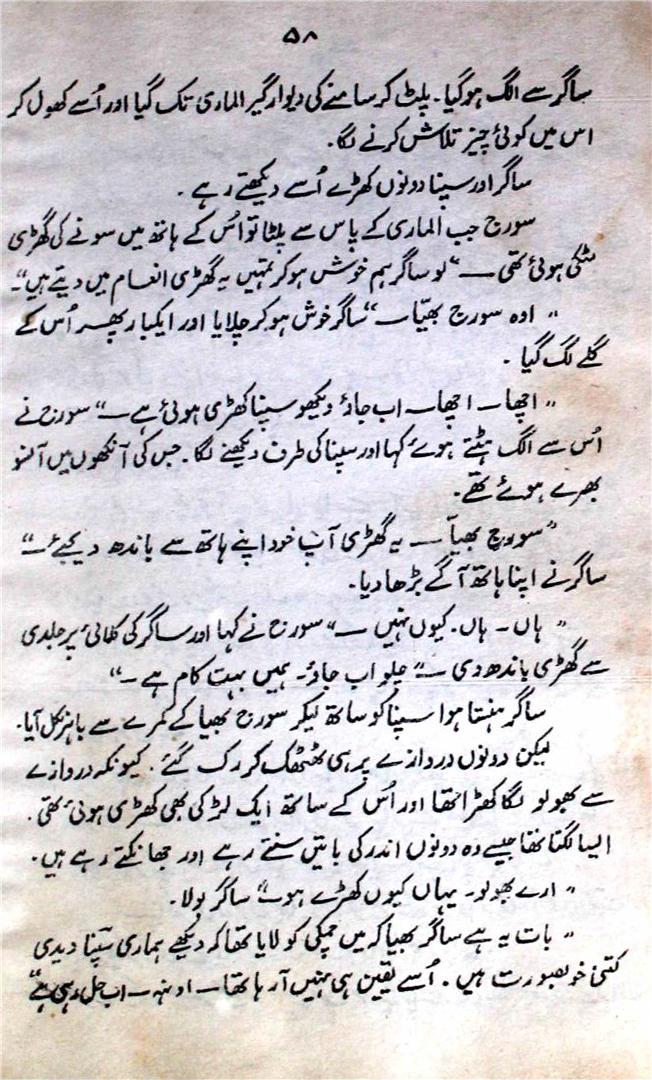 ۵۸
ساگر سے الگ ہو گیا۔ پلٹ کر سامنے کی دیوار گیر الماری تک گیا اور اُسے کھول کر
اس میں کوئی چیز تلاش کرنے لگا۔
ساگر اور سپنا دونوں کھڑے اُسے دیکھتے رہے ۔
سورج جب الماری کے پاس سے پلٹا تو اُس کے ہاتھ میں سونے کی گھڑی
لٹکی ہوئی تھی ــ "لو ساگر ہم خوش ہو کر تمہیں یہ گھڑی انعام میں دیتے ہیں"۔
" اوہ سورج بھیّا ــ" ساگر خوش ہو کر چلایا اور ایکبار پھر اُس کے
گلے لگ گیا ۔
" اچھا ــ اچھا ــ اب جاؤ دیکھو سپنا کھڑی ہوئی ہے ــ" سورج نے
اُس سے الگ ہٹتے ہوئے کہا اور سپنا کی طرف دیکھنے لگا۔ جس کی آنکھوں میں آنسو
بھرے ہوئے تھے۔
"سورج بھیاّ ــ یہ گھڑی آپ خود اپنے ہاتھ سے باندھ دیجئے ــ"
ساگر نے اپنا ہاتھ آگے بڑھا دیا۔
" ہاں ۔ ہاں ۔ کیوں نہیں ــ" سورج نے کہا اور ساگر کی کلائی پر جلدی
سے گھڑی باندھ دی ــ" چلو اب جاؤ ۔ ہمیں بہت کام ہے ــ"
ساگر ہنستا ہوا سپنا کو ساتھ لیکر سورج بھیا کے کمرے سے باہر نکل آیا۔
لیکن دونوں دروازے پر ہی ٹھٹھک کر رک گئے ۔ کیونکہ دروازے
سے بھولو لگا کھڑا تھا اور اُس کے ساتھ ایک لڑکی بھی کھڑی ہوئی تھی ۔
ایسا لگتا تھا جیسے وہ دونوں اندر کی باتیں سنتے رہے اور جھانکتے رہے ہیں ۔
" ارے بھولو ۔ یہاں کیوں کھڑے ہو ــ" ساگر بولا۔
" بات یہ ہے ساگر بھیا کہ میں چمپکی کو لایا تھا کہ دیکھے ہماری سپنا دیدی
کتنی خوبصورت ہیں ۔ اُسے یقین ہی نہیں آ رہا تھا ــ اونہہ ــ اب جل رہی ہے"